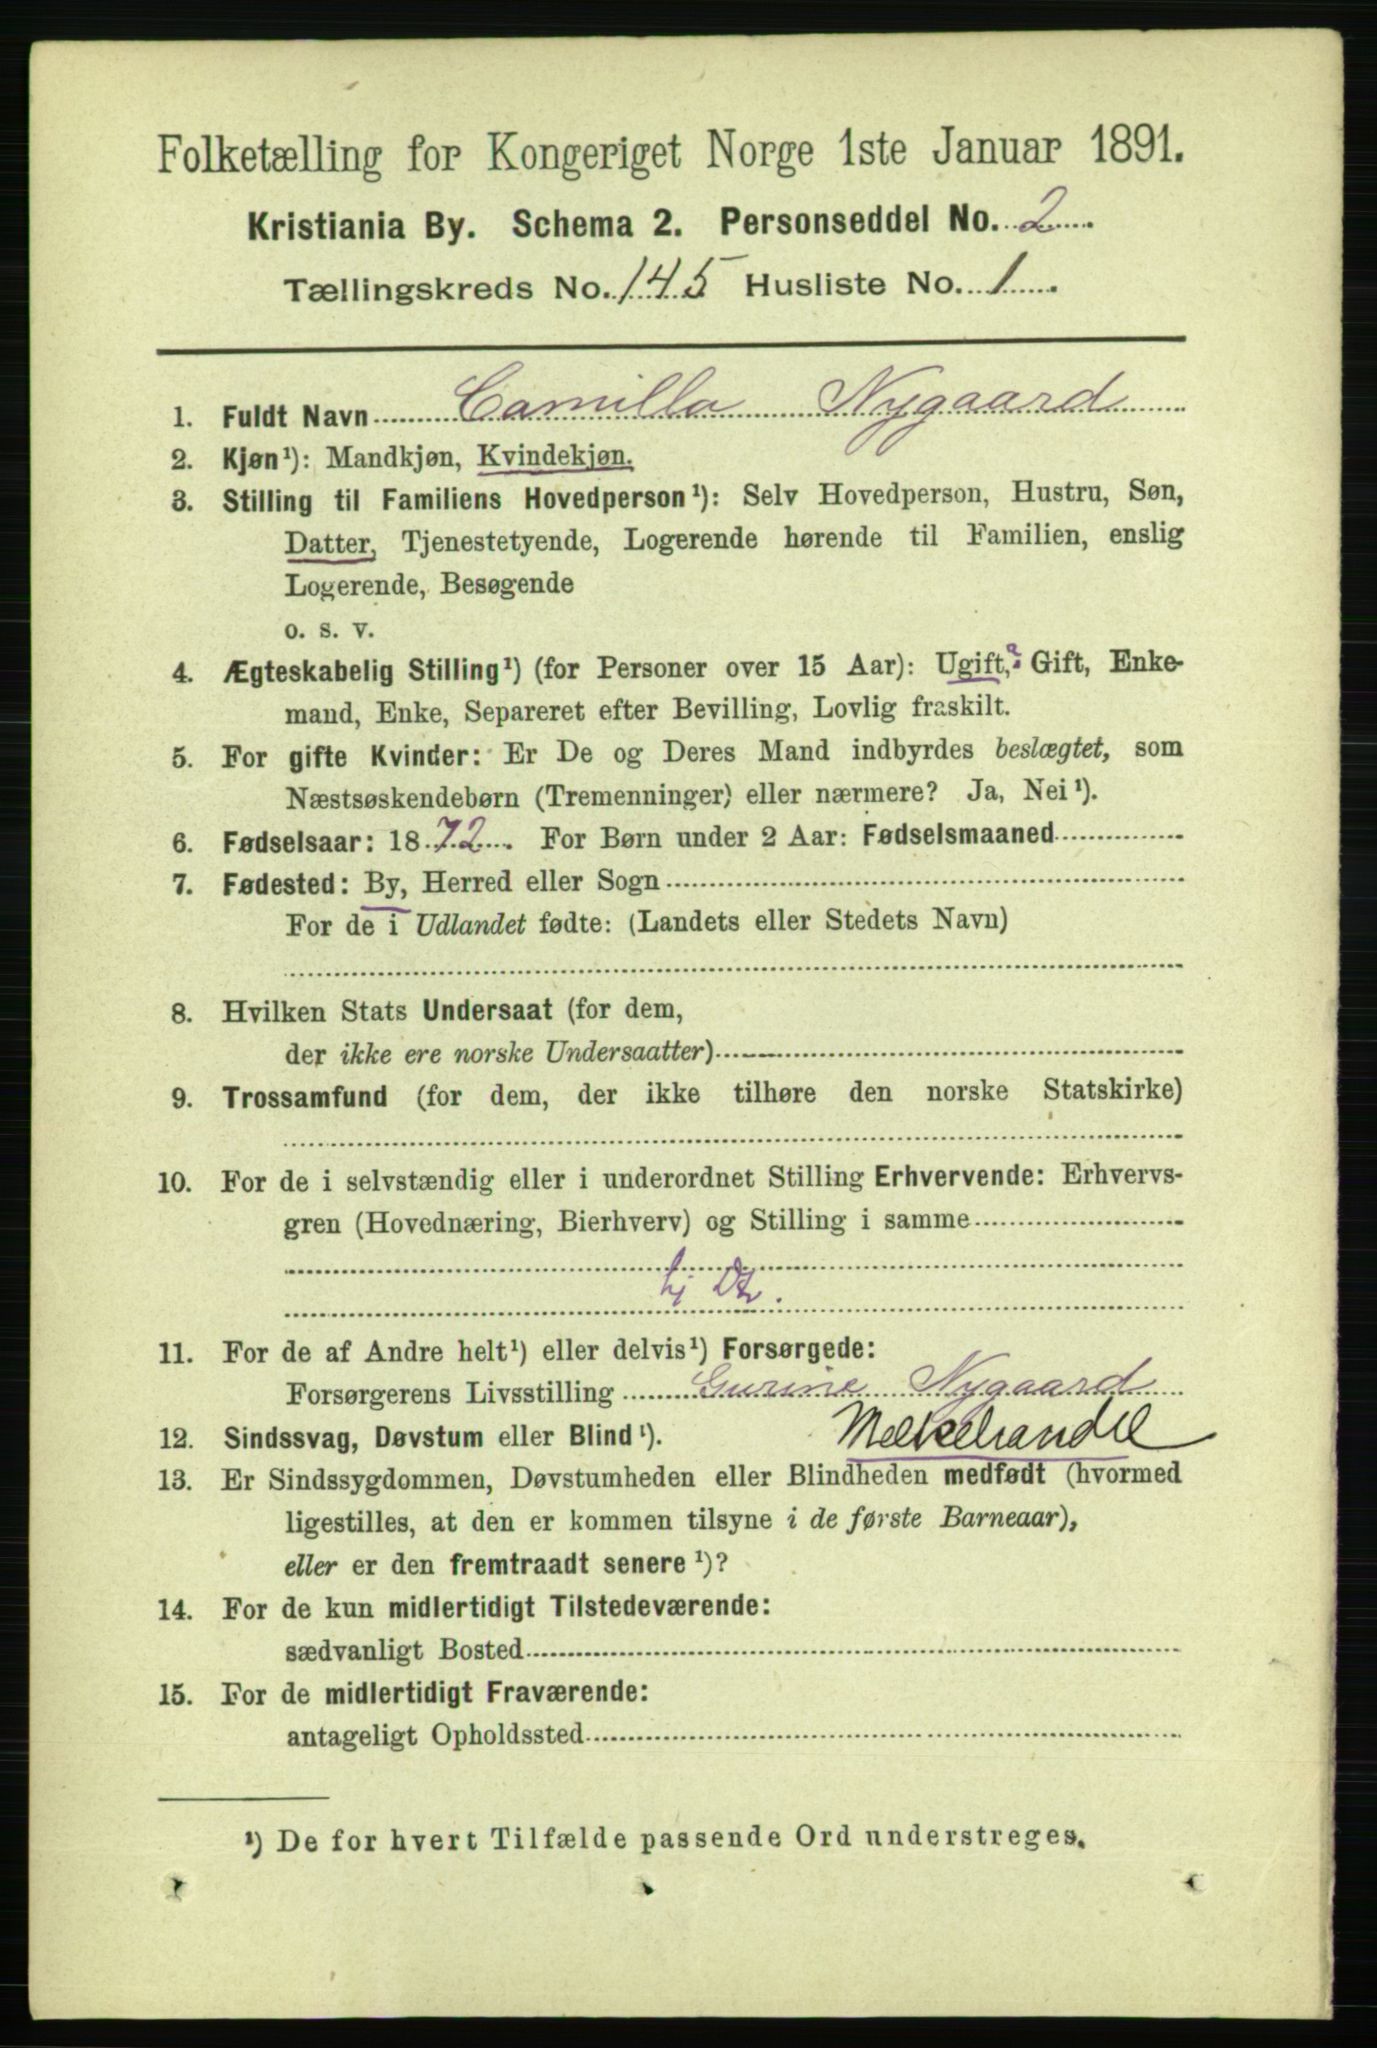 Folketælling for Kongeriget Norge 1ste Januar 1891.
Kristiania By. Schema 2. Personseddel No. 2
Tællingskreds No. 145 Husliste No. 1
1. Fuldt Navn Camilla Nygaard
2. Kjøn¹): Mandkjøn, Kvindekjøn.
3. Stilling til Familiens Hovedperson¹): Selv Hovedperson, Hustru, Søn,
Datter, Tjenestetyende, Logerende hørende til Familien, enslig
Logerende, Besøgende
o. s. v.
4. Ægteskabelig Stilling¹) (for Personer over 15 Aar): Ugift, Gift, Enke-
mand, Enke, Separeret efter Bevilling, Lovlig fraskilt.
5. For gifte Kvinder: Er De og Deres Mand indbyrdes beslægtet, som
Næstsøskendebørn (Tremenninger) eller nærmere? Ja, Nei¹).
6. Fødselsaar: 1872. For Børn under 2 Aar: Fødselsmaaned
7. Fødested: By, Herred eller Sogn
For de i Udlandet fødte: (Landets eller Stedets Navn)
8. Hvilken Stats Undersaat (for dem,
der ikke ere norske Undersaatter)
9. Trossamfund (for dem, der ikke tilhøre den norske Statskirke)
10. For de i selvstændig eller i underordnet Stilling Erhvervende: Erhvervs-
gren (Hovednæring, Bierhverv) og Stilling i samme
hj Dt.
11. For de af Andre helt¹) eller delvis¹) Forsørgede:
Forsørgerens Livsstilling Gurine Nygaard
Melkehandel
12. Sindssvag, Døvstum eller Blind¹).
13. Er Sindssygdommen, Døvstumheden eller Blindheden medfødt (hvormed
ligestilles, at den er kommen tilsyne i de første Barneaar),
eller er den fremtraadt senere¹)?
14. For de kun midlertidigt Tilstedeværende:
sædvanligt Bosted
15. For de midlertidigt Fraværende:
antageligt Opholdssted
¹) De for hvert Tilfælde passende Ord understreges.